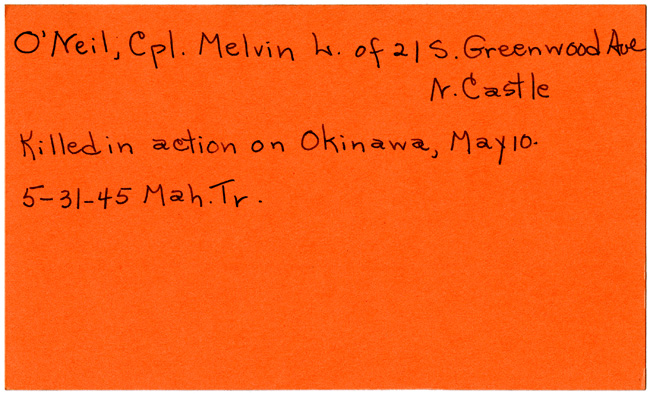 O'Neil, Cpl. Melvin L. of 21 S. Greenwood Ave
N. Castle
Killed in action on Okinawa, May 10.
5-31-45 Mah. Tr.